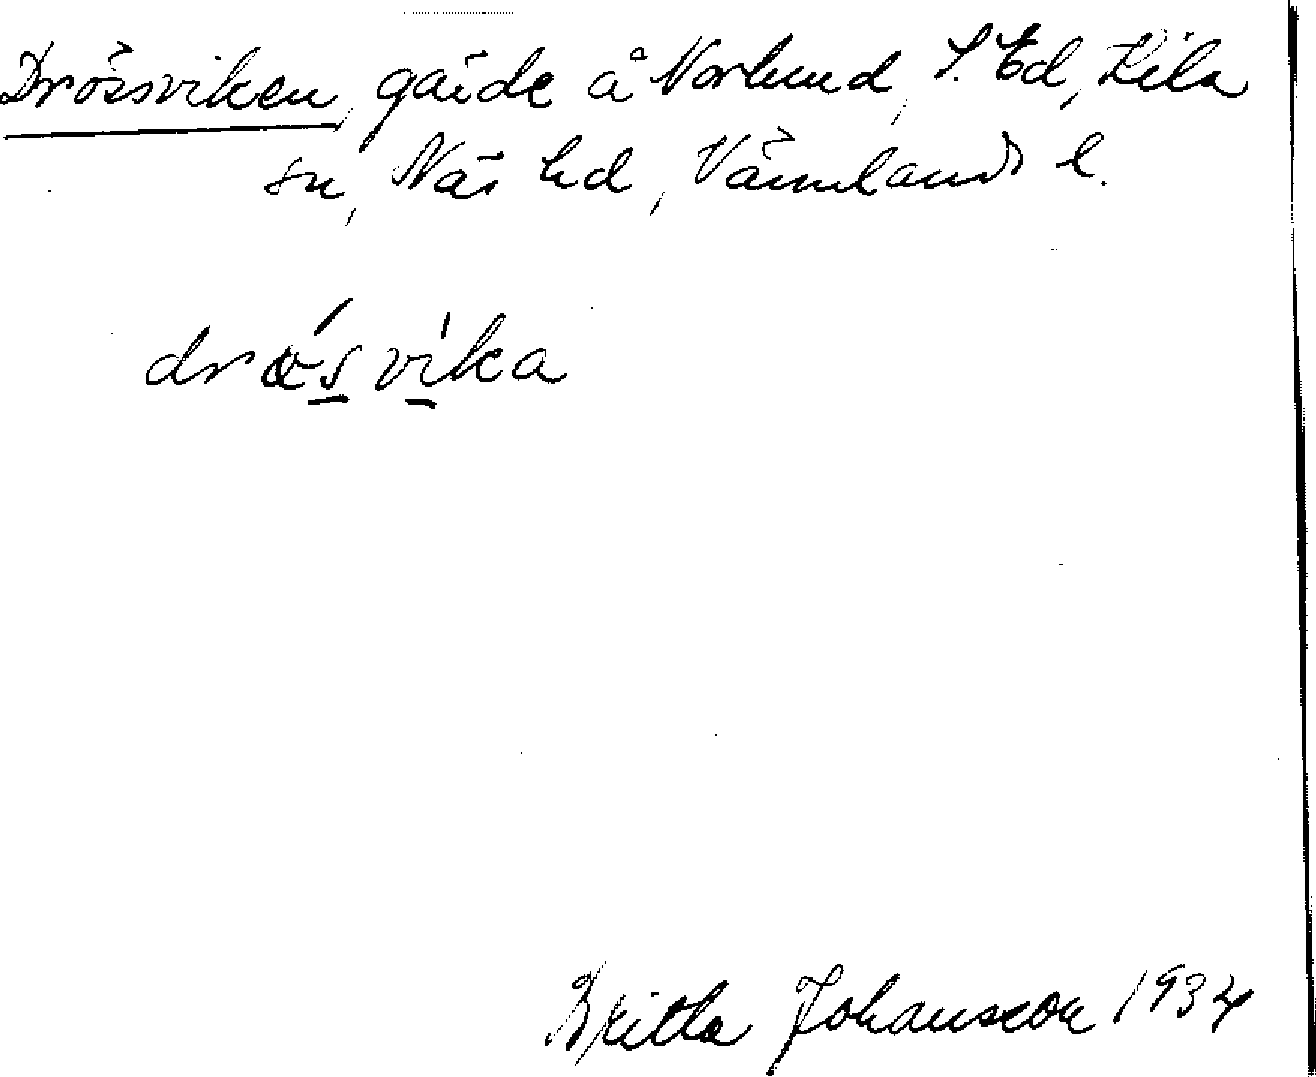 Drösviken, gärde å Norlund, S. Ed, Kila
sn, Näs hd, Värmlands l.
drœ́svika
Britta Johansson 1934